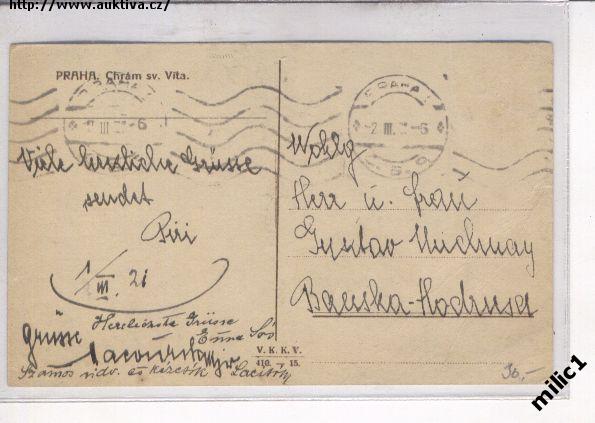 http://www.auktiva.cz/
PRAHA. Chrám sv. Víta.
2 III 6
-2 III. 6
Viele herzliche Grüsse
sendet
Piri
1/III. 21
Herzlichste Grüsse
Grüsse
Számos üdv. és kézcsók
V. K. K. V.
410. - 15.
Wohlg
Herr u. Frau
Gustav
Banska-Hodrusa
30,-
milic1